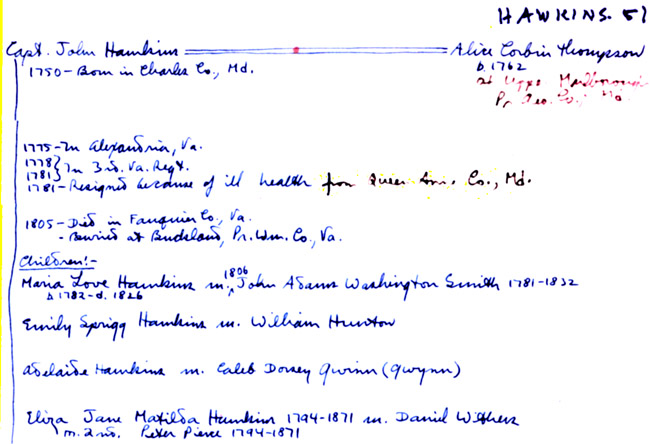 HAWKINS. 51
Capt. John Hawkins Alice Corbin Thompson
1750 - Born in Charles Co., Md. b. 1762
at Upper Marlborough
Pr. Geo. Co., Md.
1775 - In Alexandria, Va.
1778
1781 } In 3rd. Va. Regt.
1781 - Resigned because of ill health from Queen Ann. Co., Md.
1805 - Died in Fauquier Co., Va.
- Buried at Buckland, Pr. Wm. Co., Va.
Children:-
Maria Love Hawkins m. 1806 John Adams Washington Smith 1781-1832
b 1782 - d. 1826
Emily Sprigg Hawkins m. William Hunton
Adelaide Hawkins m. Caleb Dorsey Gwinn (Gwynn)
Eliza Jane Matilda Hawkins 1794-1871 m. Daniel Withers
m. 2nd. Peter Pierce 1794-1871